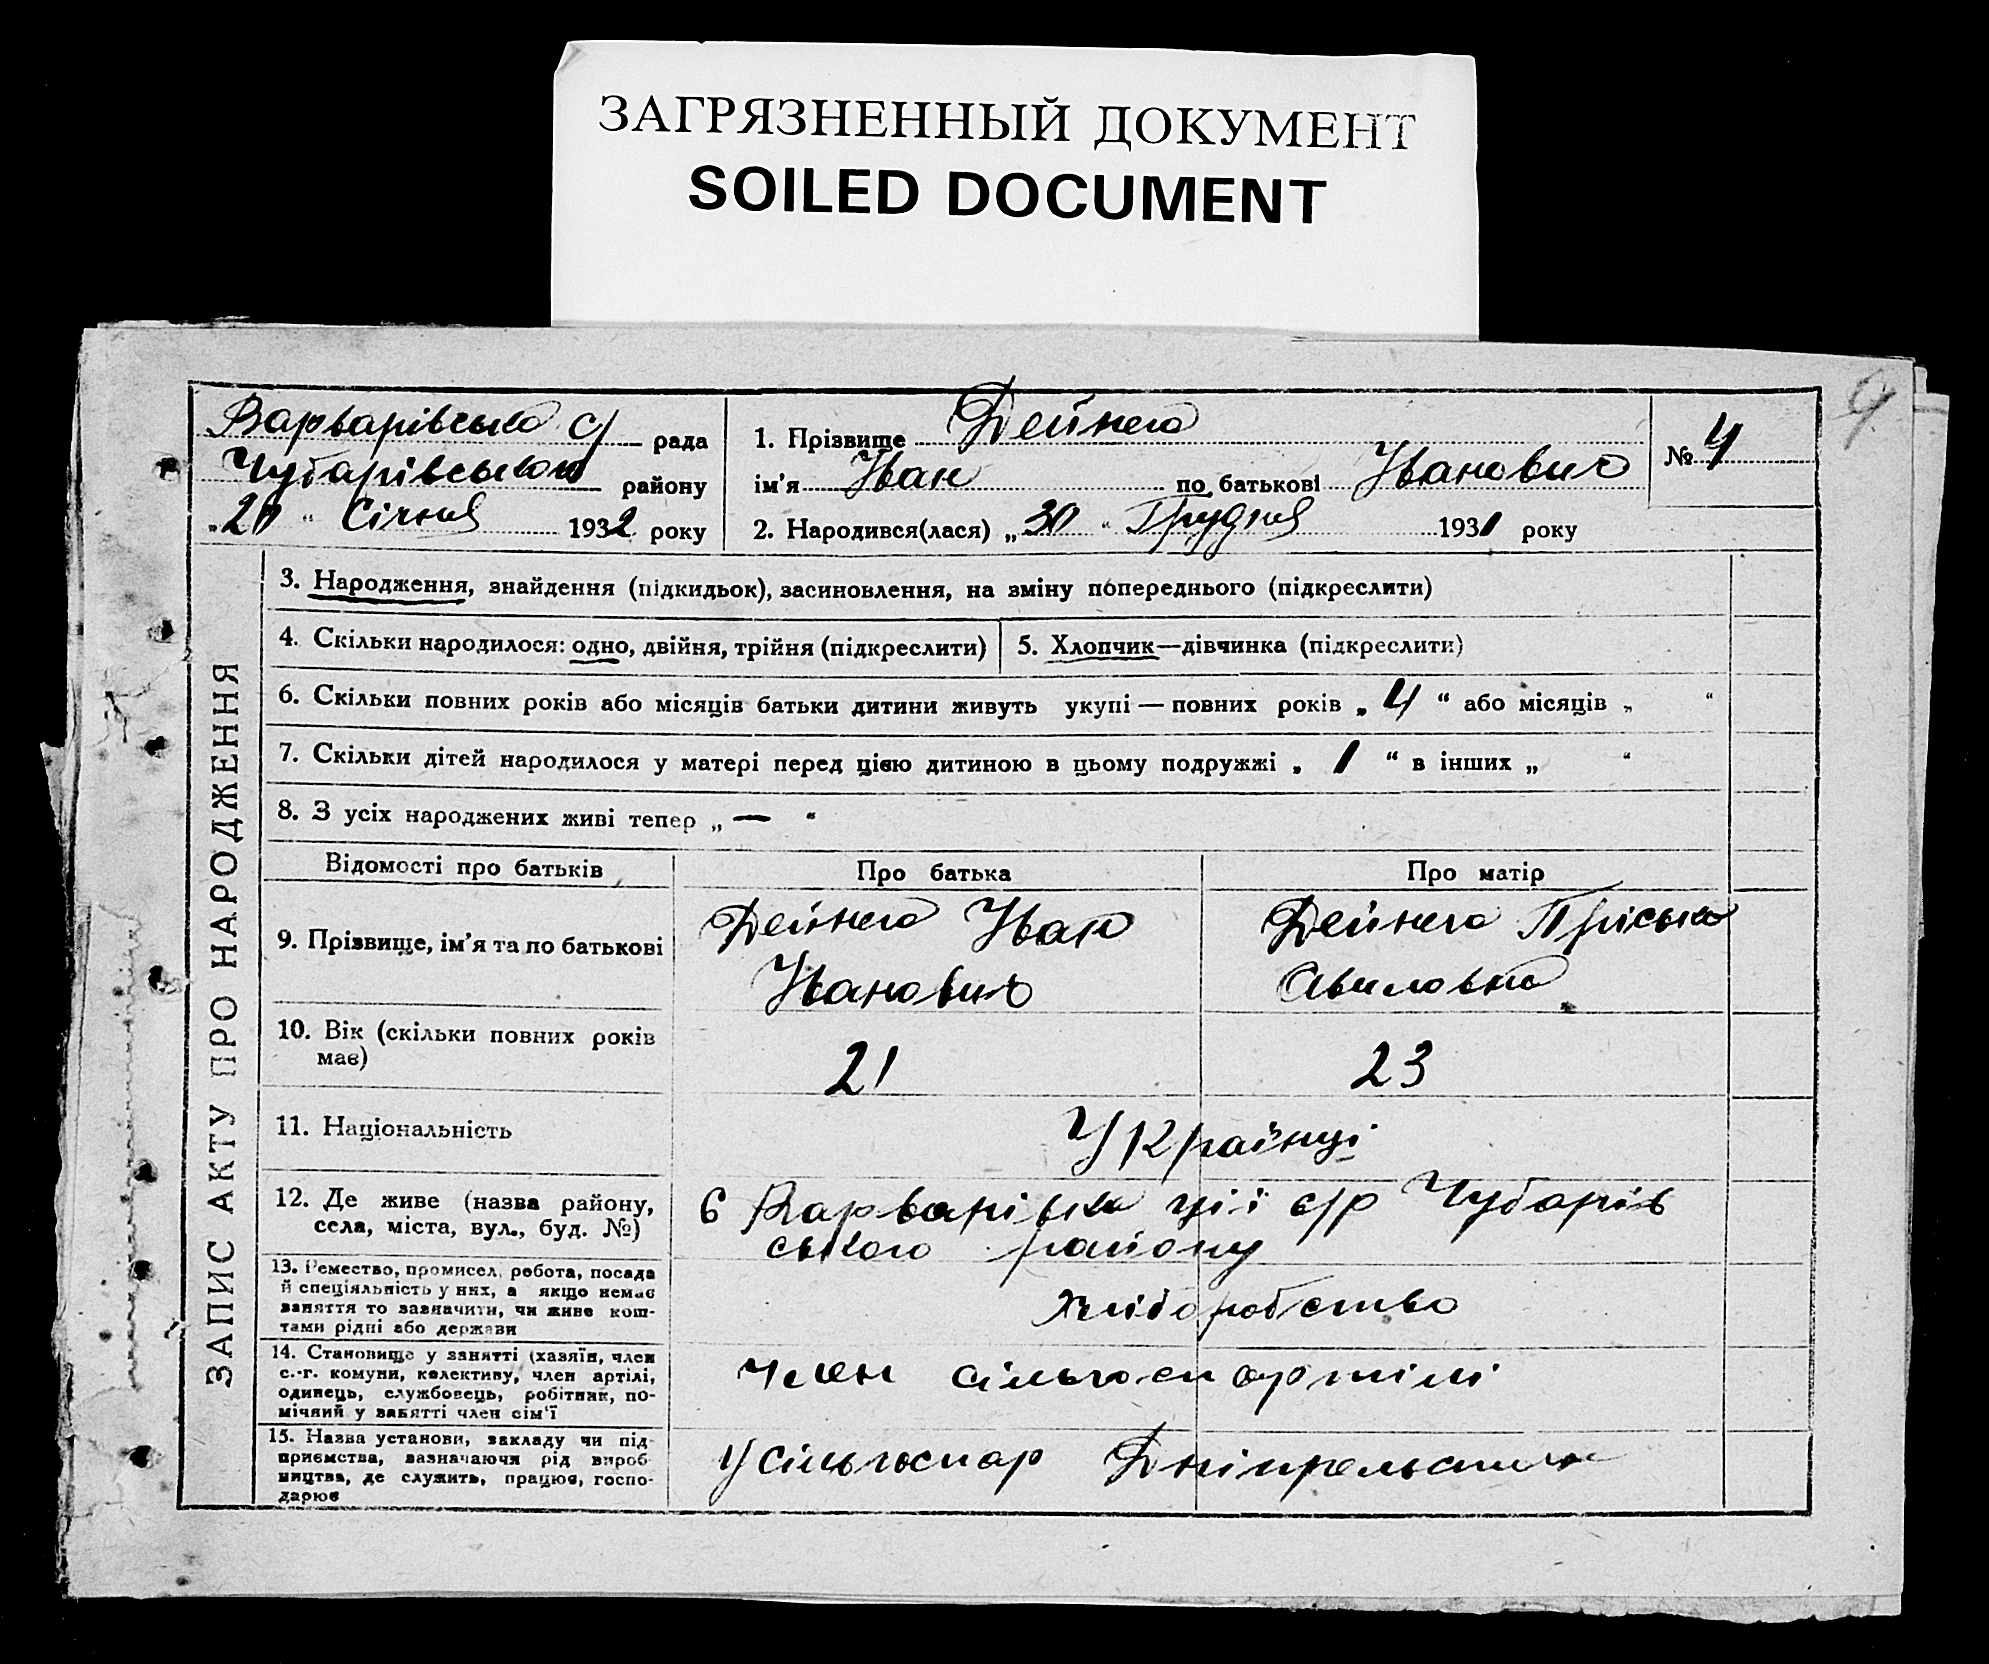 ЗАГРЯЗНЕННЫЙ ДОКУМЕНТ
SOILED DOCUMENT
9
Варварівська с/ рада
Чубарівського району
„20“ Січня 1932 року
1. Прізвище Дейнега
ім'я Іван по батькові Іванович
2. Народився(лася) „30“ Грудня 1931 року
№ 4
ЗАПИС АКТУ ПРО НАРОДЖЕННЯ
3. Народження, знайдення (підкидьок), засиновлення, на зміну попереднього (підкреслити)
4. Скільки народилося: одно, двійня, трійня (підкреслити)
5. Хлопчик—дівчинка (підкреслити)
6. Скільки повних років або місяців батьки дитини живуть укупі — повних років „4“ або місяців „ “
7. Скільки дітей народилося у матері перед цією дитиною в цьому подружжі „1“ в інших „ “
8. З усіх народжених живі тепер „—“
Відомості про батьків
Про батька
Про матір
9. Прізвище, ім'я та по батькові
Дейнега Іван
Іванович
Дейнега Пріська
10. Вік (скільки повних років
має)
21
23
11. Національність
Українці
12. Де живе (назва району,
села, міста, вул., буд. №)
в Варварівка ціі с/р Чубарів
ського району
13. Ремество, промисел, робота, посада
й спеціяльність у них, а якщо немає
заняття то зазначити, чи живе кош-
тами рідні або держави
хліборобство
14. Становище у занятті (хазяїн, член
с.-г. комуни, колективу, член артілі,
одинець, службовець, робітник, по-
мічний у занятті член сім'ї
Член сільгосп артілі
15. Назва установи, закладу чи під-
приємства, зазначаючи рід вироб-
ництва, де служить, працює, госпо-
дарює
У сільгоспар